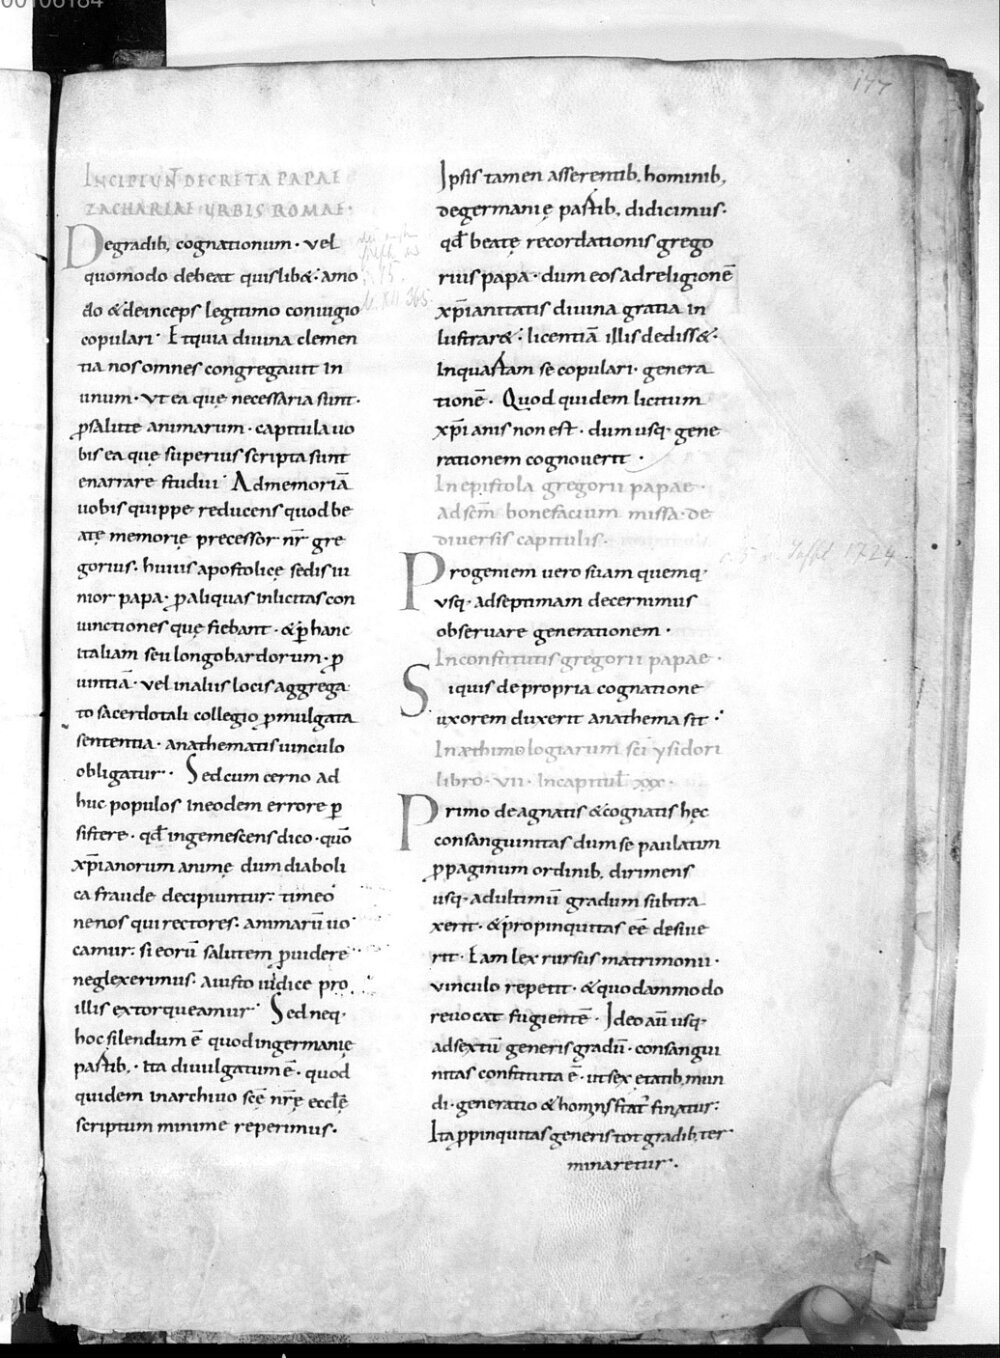 00106184
177
INCIPIUNT DECRETA PAPAE
ZACHARIAE URBIS ROMAE·
Degradib, cognationum· vel
quomodo debeat quislib&· amo
do & deinceps legitimo coniugio
copulari· Etquia diuina clemen
tia nos omnes congregauit in
unum· vt ea quę necessaria sunt·
ꝓsalute animarum· capitula uo
bis ea quę superius scripta sunt
enarrare studui· Admemoriā
uobis quippe reducens quod be
atę memorię precessor nr̄ gre
gorius· huius apostolicę sedis iu
nior papa· ꝑ aliquas inlicitas con
iunctiones quę fiebant· & ꝑ hanc
italiam seu longobardorum· ꝓ
uintiā· vel in aliis locis aggrega
to sacerdotali collegio ꝓmulgata
sententia· anathematis uinculo
obligatur· Sed cum cerno ad
huc populos in eodem errore ꝑ
sistere· qđ ingemescens dico· quō
xp̄ianorum animę dum diaboli
ca fraude decipiuntur· timeo
ne nos qui rectores· animarū uo
camur· si eorū salutem ꝓuidere
neglexerimus· a iusto iudice pro
illis extorqueamur· Sed neq·
hoc silendum ē quod in germanię
partib,· ita diuulgatum ē· quod
quidem in archiuo scē nr̄ę ecclę
scriptum minime reperimus·
Ipsis tamen asserentib, hominib,
de germanię partib, didicimus·
qđ beatę recordationis grego
rius papa· dum eos ad religionē
xp̄ianitatis diuina gratia in
lustrar&· licentiā illis dediss&·
In quartam se copulari· genera
tionē· Quod quidem licitum
xp̄ianis non est· dum usq· gene
rationem cognouerit·
In epistola gregorii papae·
ad scm̄ bonefacium missa· de
diuersis capitulis·
Progeniem uero suam quemq·
vsq· ad septimam decernimus
obseruare generationem·
In constitutis gregorii papae·
Siquis de propria cognatione
uxorem duxerit anathema sit·
In æthimologiarum sci ysidori
libro· VII· In capitul xxx·
Primo de agnatis & cognatis hęc
consanguinitas dum se paulatim
ꝓpaginum ordinib, dirimens
usq· ad ultimū gradum subtra
xerit· & propinquitas eē desiue
rit· Eam lex rursus matrimonii·
vinculo repetit· & quodammodo
reuocat fugientē· Ideo aū usq·
ad sextū generis gradū· consangui
nitas constituta ē· ut sex etatib, mun
di· generatio & hominis stat finitus·
Ita ꝓpinquitas generis tot gradib, ter
minaretur·